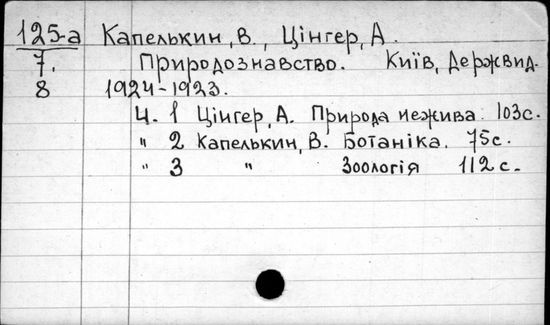 125-а Капелькин, В., Цінгер, А.
7. Природознавство. Київ, Держвид.
8 1924-1923.
Ч. 1 Цінгер, А. Природа нежива. 103с.
" 2 Капелькин, В. Ботаніка. 75с.
" 3 " Зоологія 112 с.